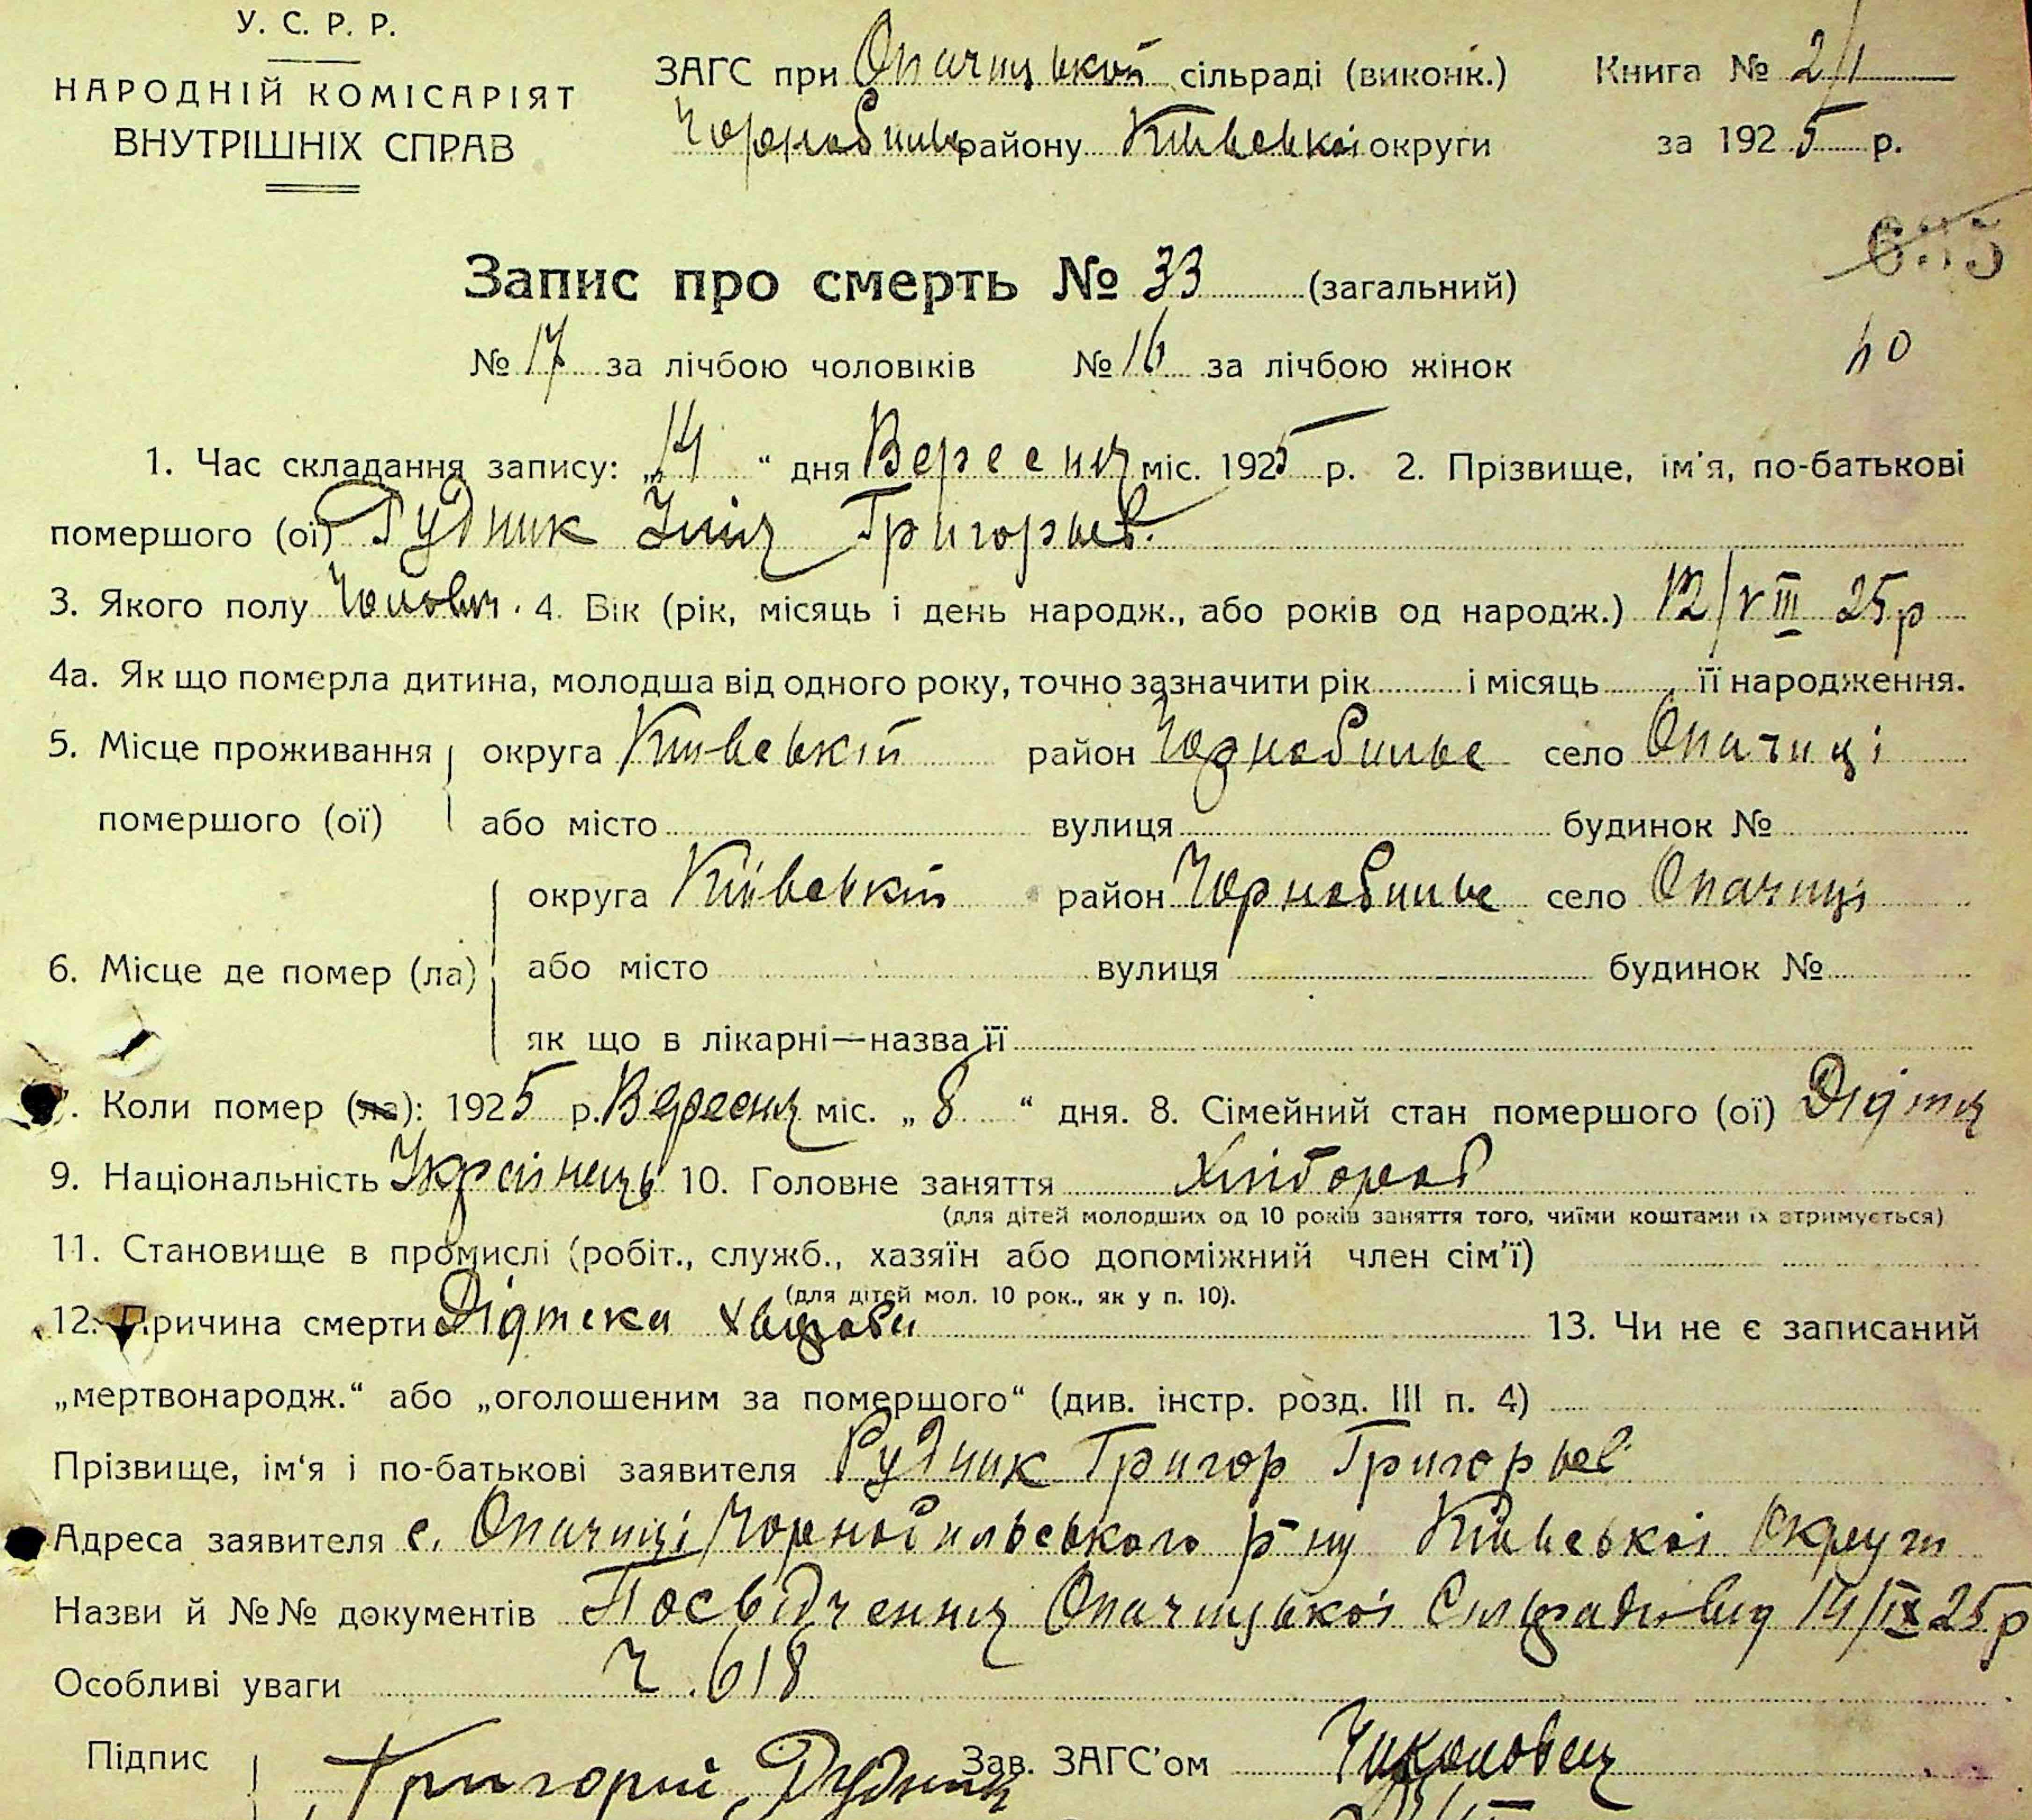 У. С. Р. Р.
НАРОДНІЙ КОМІСАРІЯТ
ВНУТРІШНІХ СПРАВ
ЗАГС при Опачицькой сільраді (виконк.)
Чорнобильс району Київської округи
Книга № 2/1
за 1925 р.
635
Запис про смерть № 33 (загальний)
№ 17 за лічбою чоловіків № 16 за лічбою жінок
40
1. Час складання запису: „14“ дня Вересня міс. 1925 р. 2. Прізвище, ім'я, по-батькові
помершого (ої) Рудник Ілія Григорьев.
3. Якого полу Чолович. 4. Вік (рік, місяць і день народж., або років од народж.) 12/VIII 25р
4а. Як що померла дитина, молодша від одного року, точно зазначити рік і місяць її народження.
5. Місце проживання округа Київській район Чорнобильс село Опачиці
помершого (ої) або місто вулиця будинок №
округа Київській район Чорнобильс село Опачиці
6. Місце де помер (ла) або місто вулиця будинок №
як що в лікарні—назва її
. Коли помер (ла): 1925 р. Вересня міс. „8“ дня. 8. Сімейний стан помершого (ої) Дідтя
9. Національність Українець 10. Головне заняття Хлібороб
(для дітей молодших од 10 років заняття того, чиїми коштами їх отримується)
11. Становище в промислі (робіт., служб., хазяїн або допоміжний член сім'ї)
(для дітей мол. 10 рок., як у п. 10).
12. Причина смерти Дідтска хвороба 13. Чи не є записаний
„мертвонародж.“ або „оголошеним за помершого“ (див. інстр. розд. III п. 4)
Прізвище, ім'я і по-батькові заявителя Рудник Григор Григорьев
Адреса заявителя с. Опачиці Чорнобильського р-ну Київської Округи
Назви й №№ документів Посвідчення Опачицької Сільради від 14/IX 25р
Особливі уваги ч. 618
Підпис Григорий Рудник Зав. ЗАГС'ом